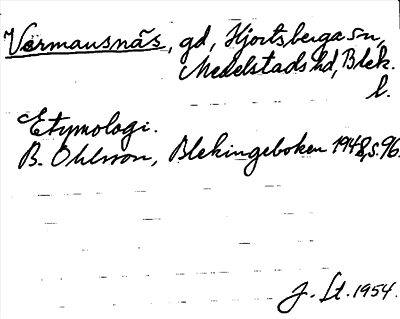 Vermansnäs, gd, Hjortsberga sn,
Medelstads hd, Blek.
l.
Etymologi.
B. Ohlsson, Blekingeboken 1948, s. 96.
J. Lt. 1954.